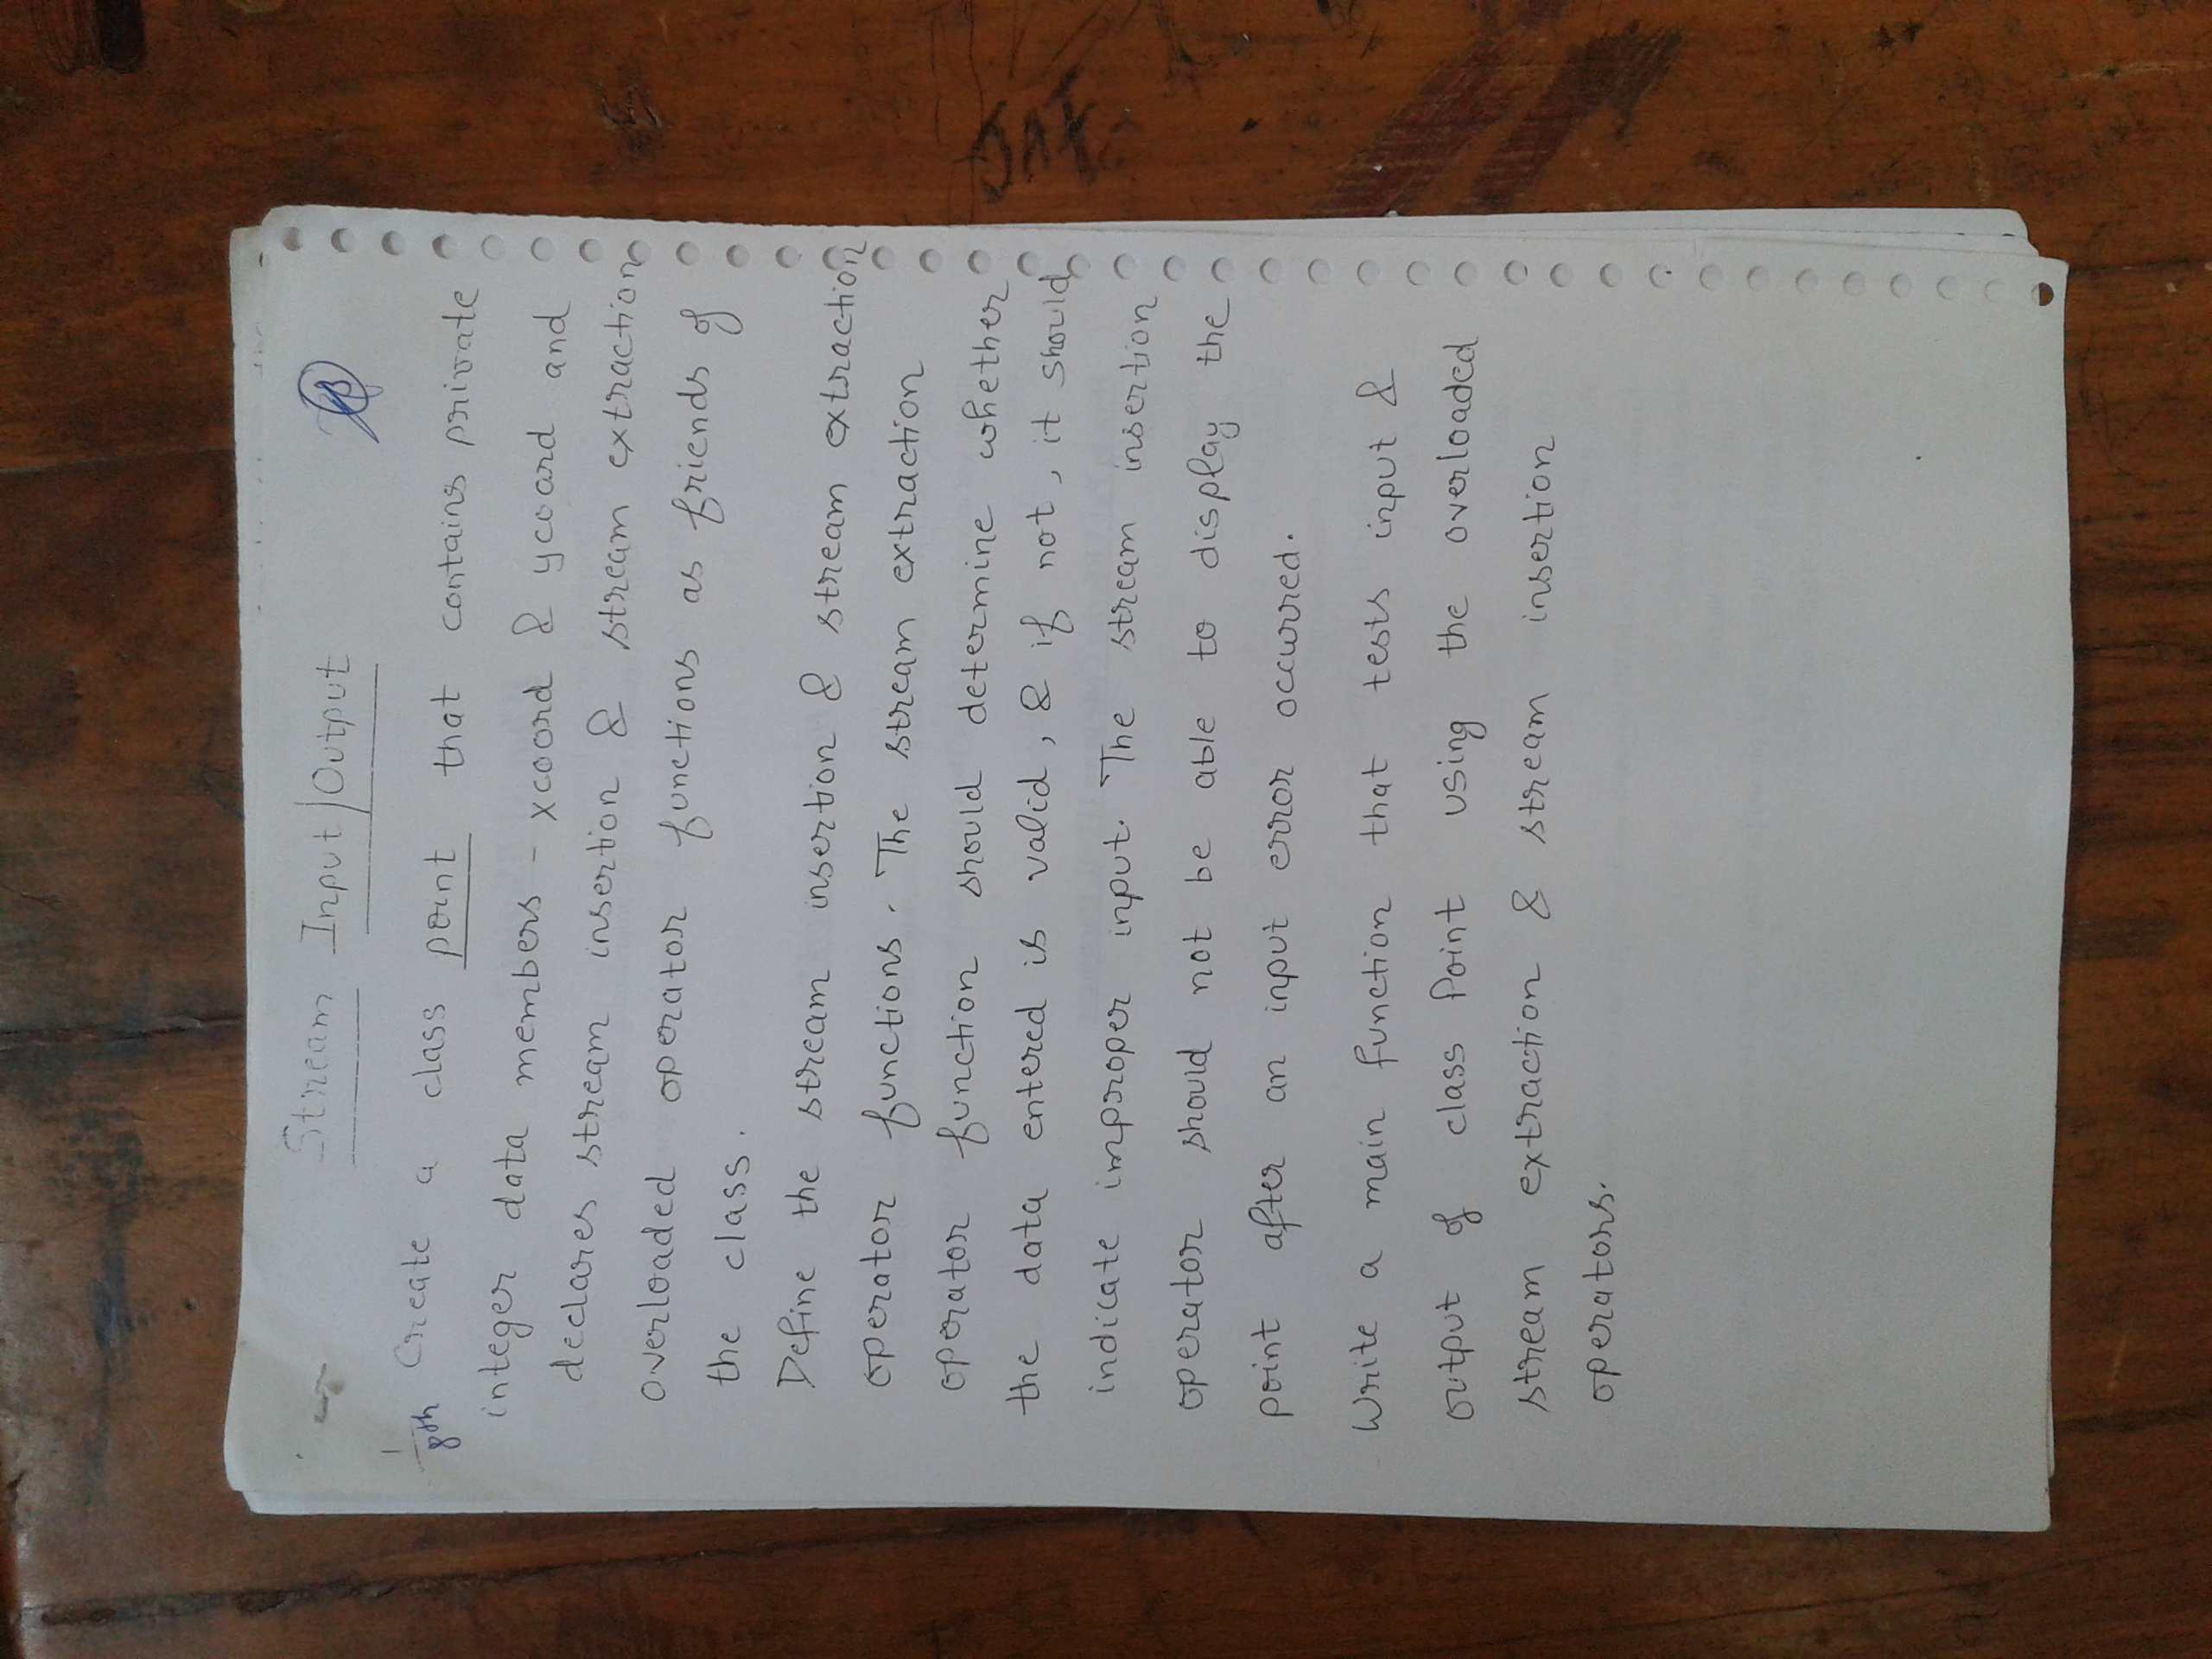 Stream Input/Output
Create a class point that contains private
integer data members - xcoord & ycoord and
declares stream insertion & stream extraction
overloaded operator functions as friends of
the class.
Define the stream insertion & stream extraction
operator functions. The stream extraction
operator function should determine whether
the data entered is valid, & if not, it should
indicate improper input. The stream insertion
operator should not be able to display the
point after an input error occurred.
Write a main function that tests input &
output of class Point using the overloaded
stream extraction & stream insertion
operators.